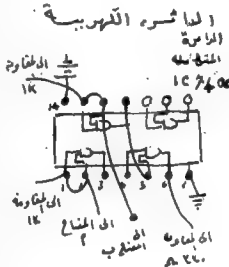 الدائرة الكهربية
الدامرة
المتكاملة
IC 7400
الى المقاومة
1K
14
1 2 3 4 5 6 7
الى المقاومة
1K
الى المفتاح
الى
المفتاح ب
الى المقاومة